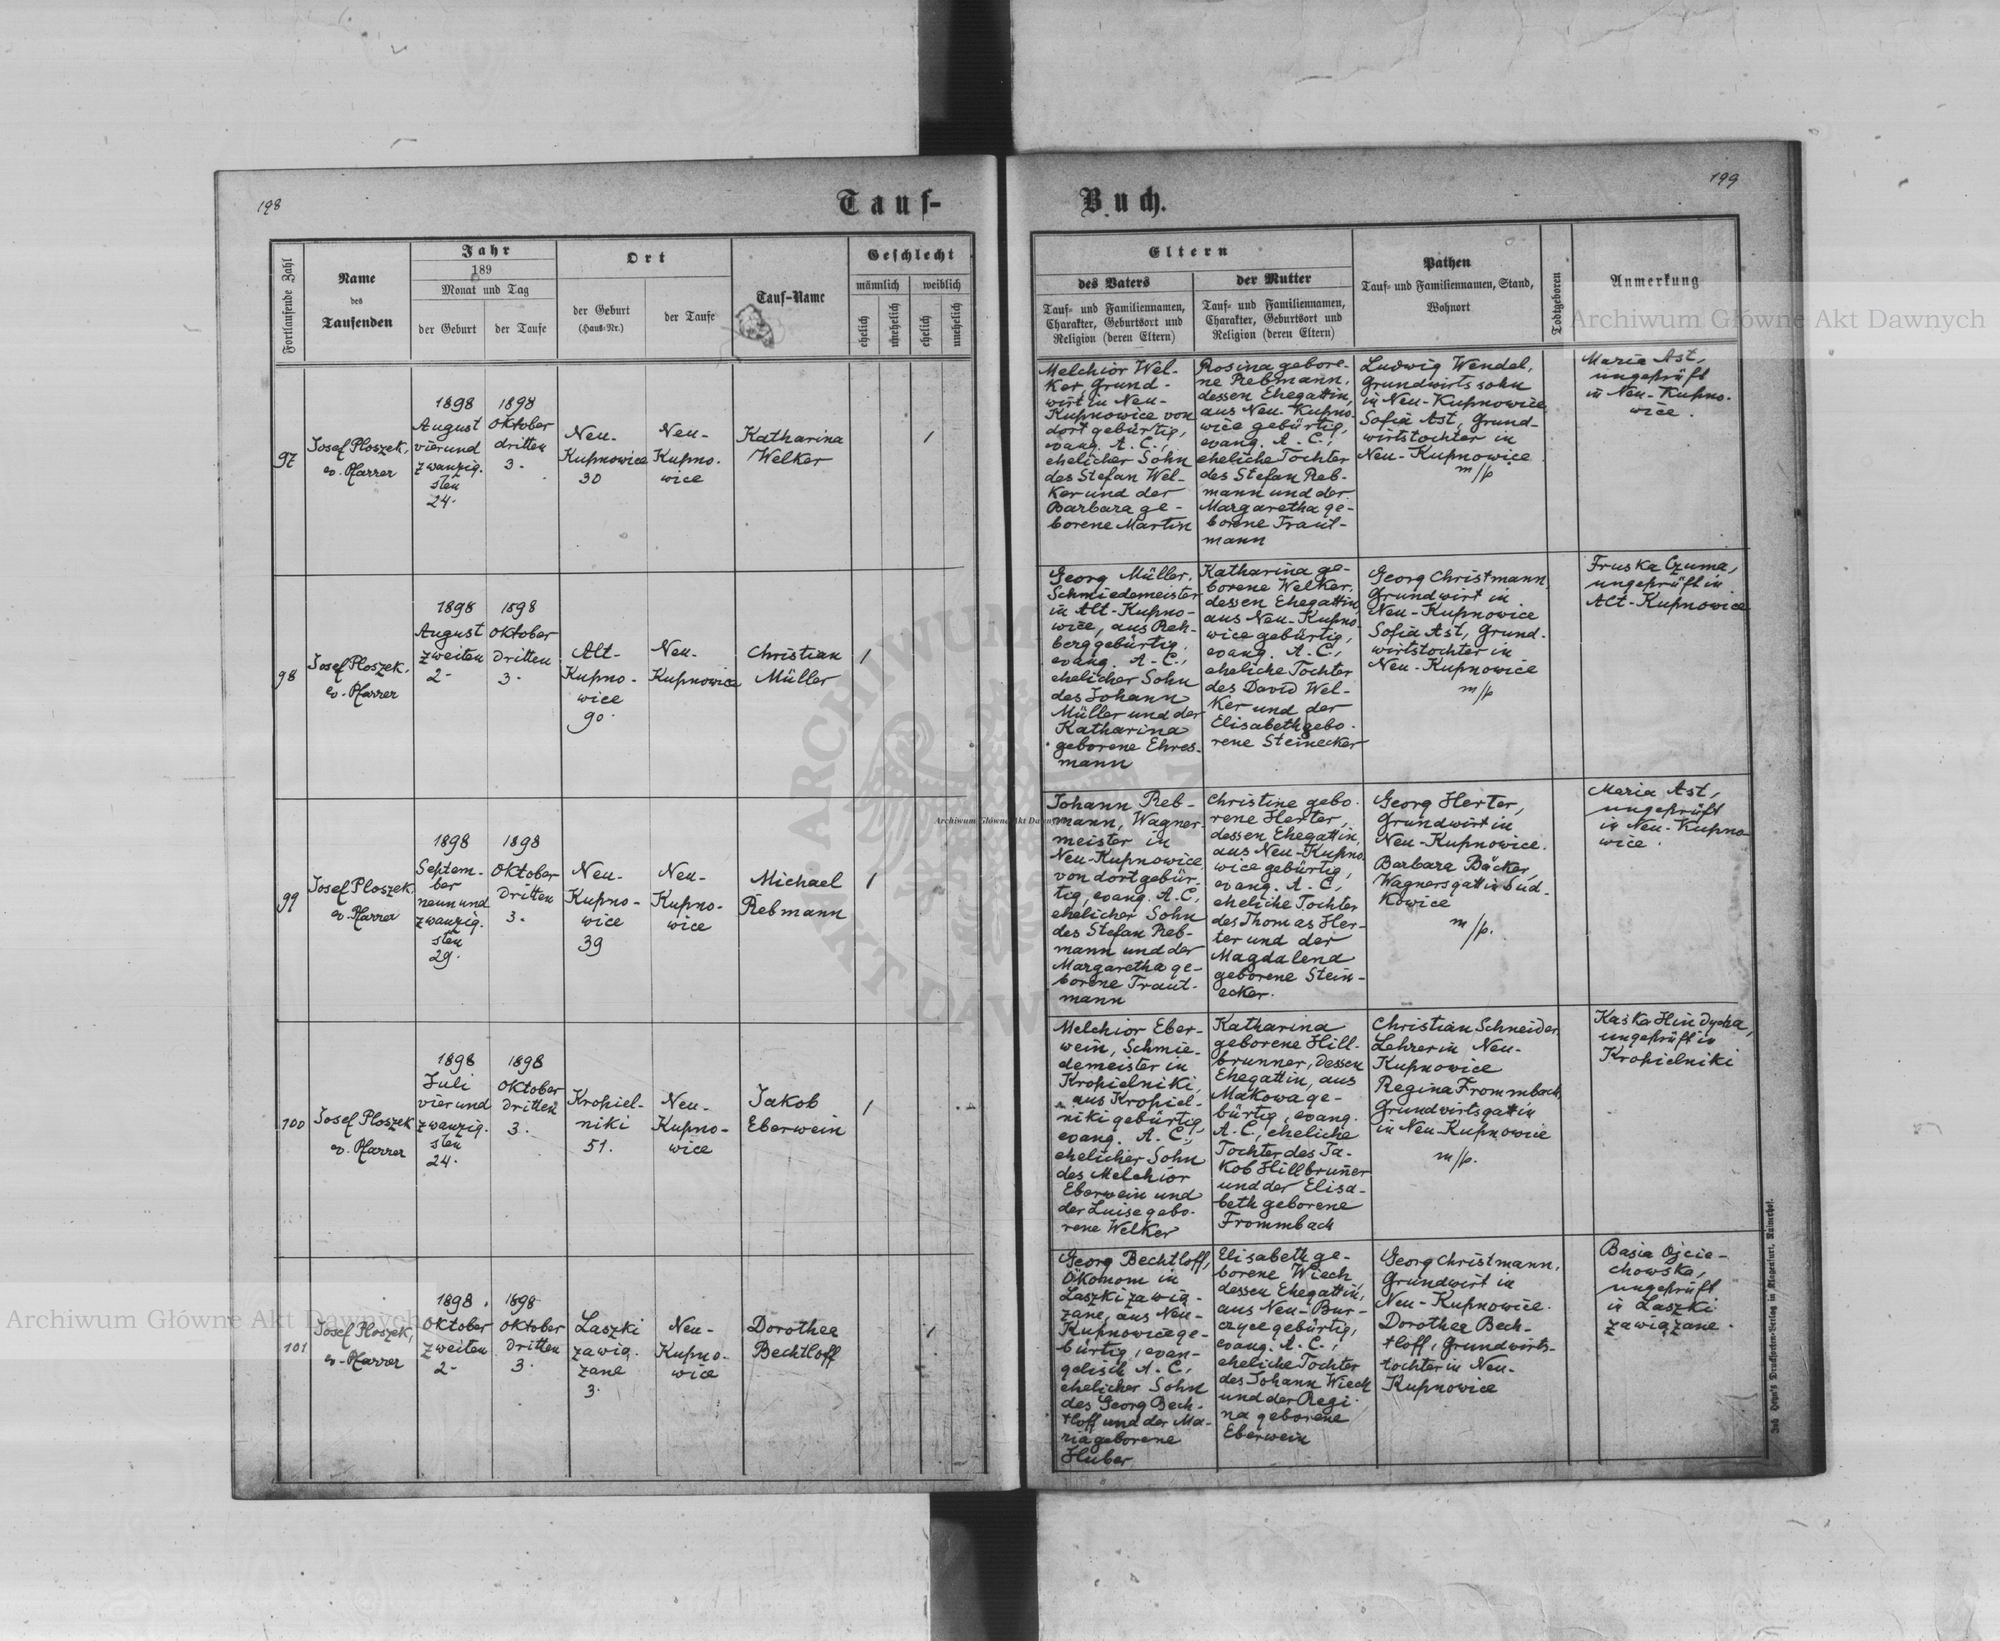 198
199
Tauf-
Buch.
Fortlaufende Zahl
Name
des
Taufenden
Jahr
189
Monat und Tag
der Geburt
der Taufe
Ort
der Geburt
(Haus-Nr.)
der Taufe
Tauf-Name
Geschlecht
männlich
weiblich
ehelich
unehelich
ehelich
unehelich
Eltern
des Vaters
Tauf- und Familiennamen,
Charakter, Geburtsort und
Religion (deren Eltern)
der Mutter
Tauf- und Familiennamen,
Charakter, Geburtsort und
Religion (deren Eltern)
Pathen
Tauf- und Familiennamen, Stand,
Wohnort
Todtgeboren
Anmerkung
97
Josef Ploszek,
ev. Pfarrer
1898
August
vierund
zwanzig-
sten
24.
1898
Oktober
dritten
3.
Neu-
Kupnowice
30
Neu-
Kupno-
wice
Katharina
Welker
1
Melchior Wel-
ker Grund-
wirt in Neu-
Kupnowice von
dort gebürtig,
evang. A. C.,
ehelicher Sohn
des Stefan Wel-
ker und der
Barbara ge-
borene Martin
Rosina gebore-
ne Rebmann,
dessen Ehegattin,
aus Neu-Kupno-
wice gebürtig,
evang. A. C.,
eheliche Tochter
des Stefan Reb-
mann und der
Margaretha ge-
borene Traut-
mann
Ludwig Wendel,
Grundwirtssohn
in Neu-Kupnowice
Sofia Ast, Grund-
wirtstochter in
Neu-Kupnowice
m/p
Maria Ast,
ungeprüft
in Neu-Kupno-
wice.
98
Josef Ploszek,
ev. Pfarrer
1898
August
zweiten
2.
1898
Oktober
dritten
3.
Alt-
Kupno-
wice
90.
Neu-
Kupnowice
Christian
Müller
1
Georg Müller,
Schmiedemeister
in Alt-Kupno-
wice, aus Reh-
berg gebürtig,
evang. A. C.,
ehelicher Sohn
des Johann
Müller und der
Katharina
geborene Ehres-
mann
Katharina ge-
borene Welker,
dessen Ehegattin,
aus Neu-Kupno-
wice gebürtig,
evang. A. C.,
eheliche Tochter
des David Wel-
ker und der
Elisabeth gebo-
rene Steinecker
Georg Christmann,
Grundwirt in
Neu-Kupnowice
Sofia Ast, Grund-
wirtstochter in
Neu-Kupnowice
m/p
Fruska Czuma,
ungeprüft in
Alt-Kupnowice
99
Josef Ploszek
ev. Pfarrer
1898
Septem-
ber
neunund
zwanzig-
sten
29.
1898
Oktober
dritten
3.
Neu-
Kupno-
wice
39
Neu-
Kupno-
wice
Michael
Rebmann
1
Johann Reb-
mann, Wagner-
meister in
Neu-Kupnowice
von dort gebür-
tig, evang. A. C.
ehelicher Sohn
des Stefan Reb-
mann und der
Margaretha ge-
borene Traut-
mann
Christine gebo-
rene Herter,
dessen Ehegattin,
aus Neu-Kupno-
wice gebürtig,
evang. A. C.,
eheliche Tochter
des Thomas Her-
ter und der
Magdalena
geborene Stein-
ecker.
Georg Herter,
Grundwirt in
Neu-Kupnowice.
Barbara Bäcker,
Wagnersgattin Sud-
kowice
m/p.
Maria Ast,
ungeprüft
in Neu-Kupno
wice.
100
Josef Ploszek
ev. Pfarrer
1898
Juli
vierund
zwanzig-
sten
24.
1898
Oktober
dritten
3.
Kropiel-
niki
51.
Neu-
Kupno-
wice
Jakob
Eberwein
1
Melchior Eber-
wein, Schmie-
demeister in
Kropielniki,
aus Kropiel-
niki gebürtig,
evang. A. C.,
ehelicher Sohn
des Melchior
Eberwein und
der Luise gebo-
rene Welker
Katharina
geborene Hill-
brunner, dessen
Ehegattin, aus
Makowa ge-
bürtig, evang.
A. C., eheliche
Tochter des Ja-
kob Hillbruñer
und der Elisa-
beth geborene
Frommbach
Christian Schneider,
Lehrer in Neu-
Kupnowice
Regina Frommbach,
Grundwirtsgattin
in Neu-Kupnowice
m/p.
ungeprüft in
Kropielniki
101
Josef Ploszek,
ev. Pfarrer
1898.
Oktober
zweiten
2.
1898
Oktober
dritten
3.
Laszki
zawią-
zane
3.
Neu-
Kupno-
wice
Dorothea
Bechtloff
1
Georg Bechtloff,
Ökonom in
Laszki zawią-
zane, aus Neu-
Kupnowice ge-
bürtig, evan-
gelisch A. C.,
ehelicher Sohn
des Georg Bech-
tloff und der Ma-
ria geborene
Huber
Elisabeth ge-
borene Wiech,
dessen Ehegattin,
aus Neu-Bur-
czyce gebürtig,
evang. A. C.,
eheliche Tochter
des Johann Wiech
und der Regi-
na geborene
Eberwein
Georg Christmann,
Grundwirt in
Neu-Kupnowice.
Dorothea Bech-
tloff, Grundwirts-
tochter in Neu-
Kupnowice
Basia Ojcie-
chowska,
ungeprüft
in Laszki
zawiązane.
Archiwum Główne Akt Dawnych
Archiwum Główne Akt Dawnych
Archiwum Główne Akt Dawnych
ARCHIWUM
AKT DAW